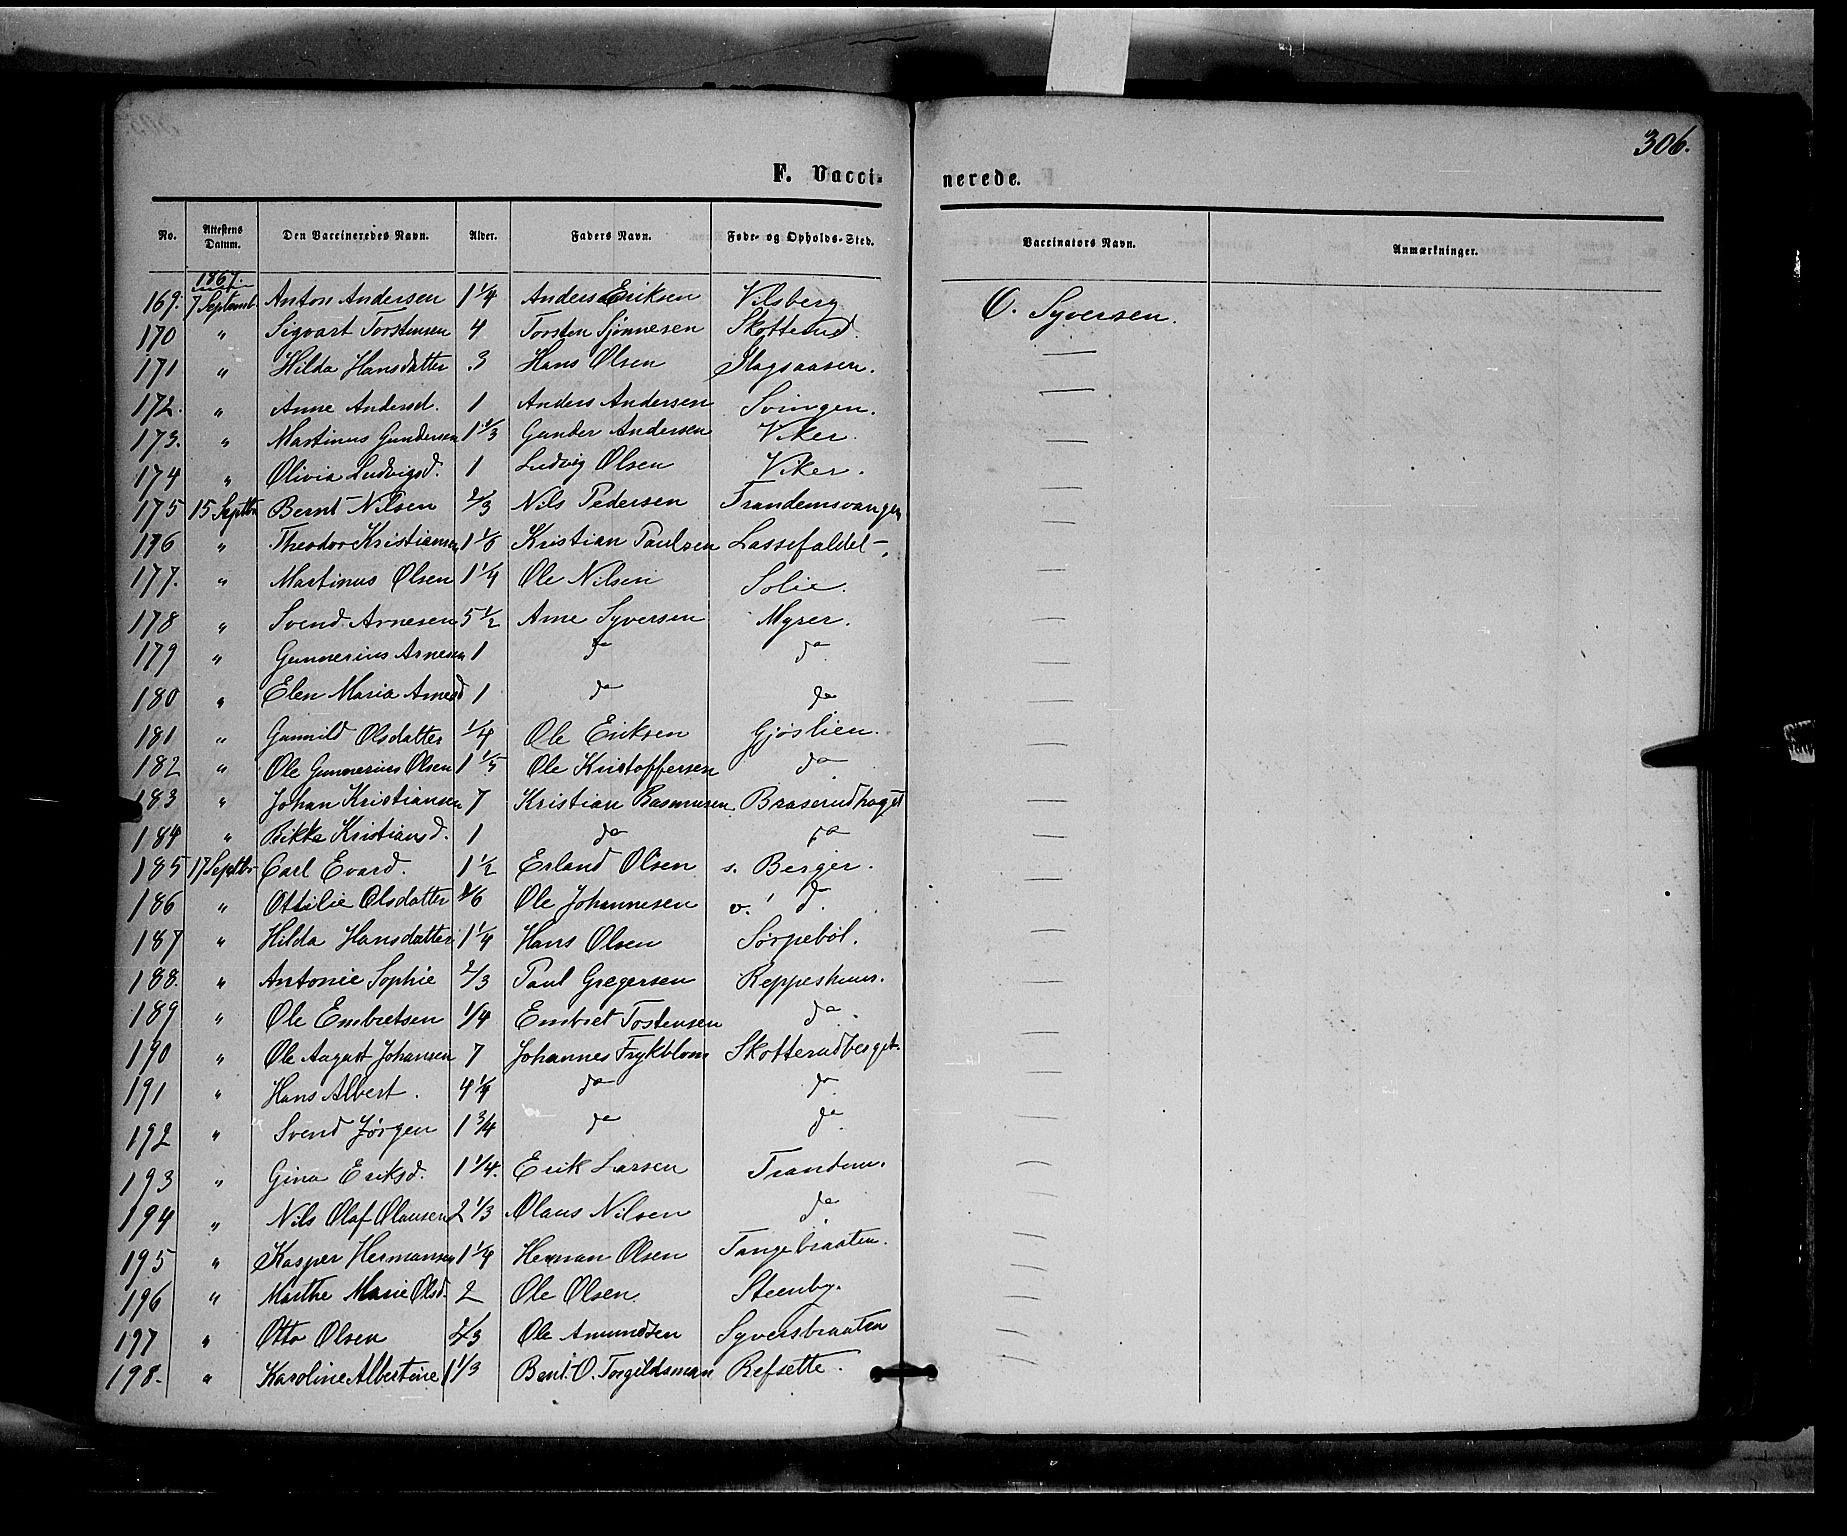 306.
F. Vaccinerede.
No. Attestens Datum. Den Vaccineredes Navn. Alder. Faders Navn. Føde- og Opholds-Sted. Vaccinators Navn. Anmærkninger.
1867.
169. 7 Septemb. Anton Andersen 1 1/4 Anders Eriksen Vilsberg O. Syversen.
170 " Sigvart Torstensen 4 Torsten Sjønnesen Skotterud. —
171 " Hilda Hansdatter 3 Hans Olsen Slagsaasen. —
172. " Anne Andersd. 1 Anders Andersen Svingen. —
173. " Martinus Gundersen 1 1/3 Gunder Andersen Viker. —
174 " Olivia Ludvigsd. 1 Ludvig Olsen Viker. —
175 15 Septbr Bernt Nilsen 2/3 Nils Pedersen Trandemsvangen —
176 " Theodor Kristiansen Kristian Paulsen Lassefaldet. —
177. " Martinus Olsen 1 1/4 Ole Nilsen Solie. —
178 " Svend Arnesen 5 1/2 Arne Syversen Myrer. —
179 " Gunnerius Arnesen 1 do do —
180 " Elen Maria Arnesd 1 do do —
181 " Gunnild Olsdatter 1/4 Ole Eriksen Gjøslien. —
182 " Ole Gunnerius Olsen 1 1/5 Ole Kristoffersen do —
183 " Johan Kristiansen 7 Kristian Rasmusen Braserudhaget —
184 " Rikka Kristiansd. 1 do do —
185 17 Septbr Carl Evard. 1 1/2 Erland Olsen s. Berger. —
186 " Ottilie Olsdatter Ole Johannesen v. d. —
187 " Hilda Hansdatter 1 1/4 Hans Olsen Sørpebøl. —
188. " Antonie Sophie 2/3 Paul Gregersen Reppeshuus. —
189 " Ole Embretsen 1/4 Embret Tostensen do —
190 " Ole August Johansen 7 Johannes Frykblom Skotterudberget. —
191 " Hans Albert. 4 1/4 do do —
192 " Svend Jørgen 1 3/4 do do —
193 " Gina Eriksd. 1 1/4. Erik Larsen Trandem. —
194 " Nils Olaf Olausen 2 1/3 Olaus Nilsen do —
195 " Kasper Hermansen 1 1/4 Herman Olsen Tangebraaten. —
196 " Marthe Marie Olsd. 2 Ole Olsen. Steenby. —
197 " Otto Olsen 2/3 Ole Amundsen Syversbraaten —
198. " Karoline Albertine 1 1/3 Bent. O. Torgildsman Refsette. —